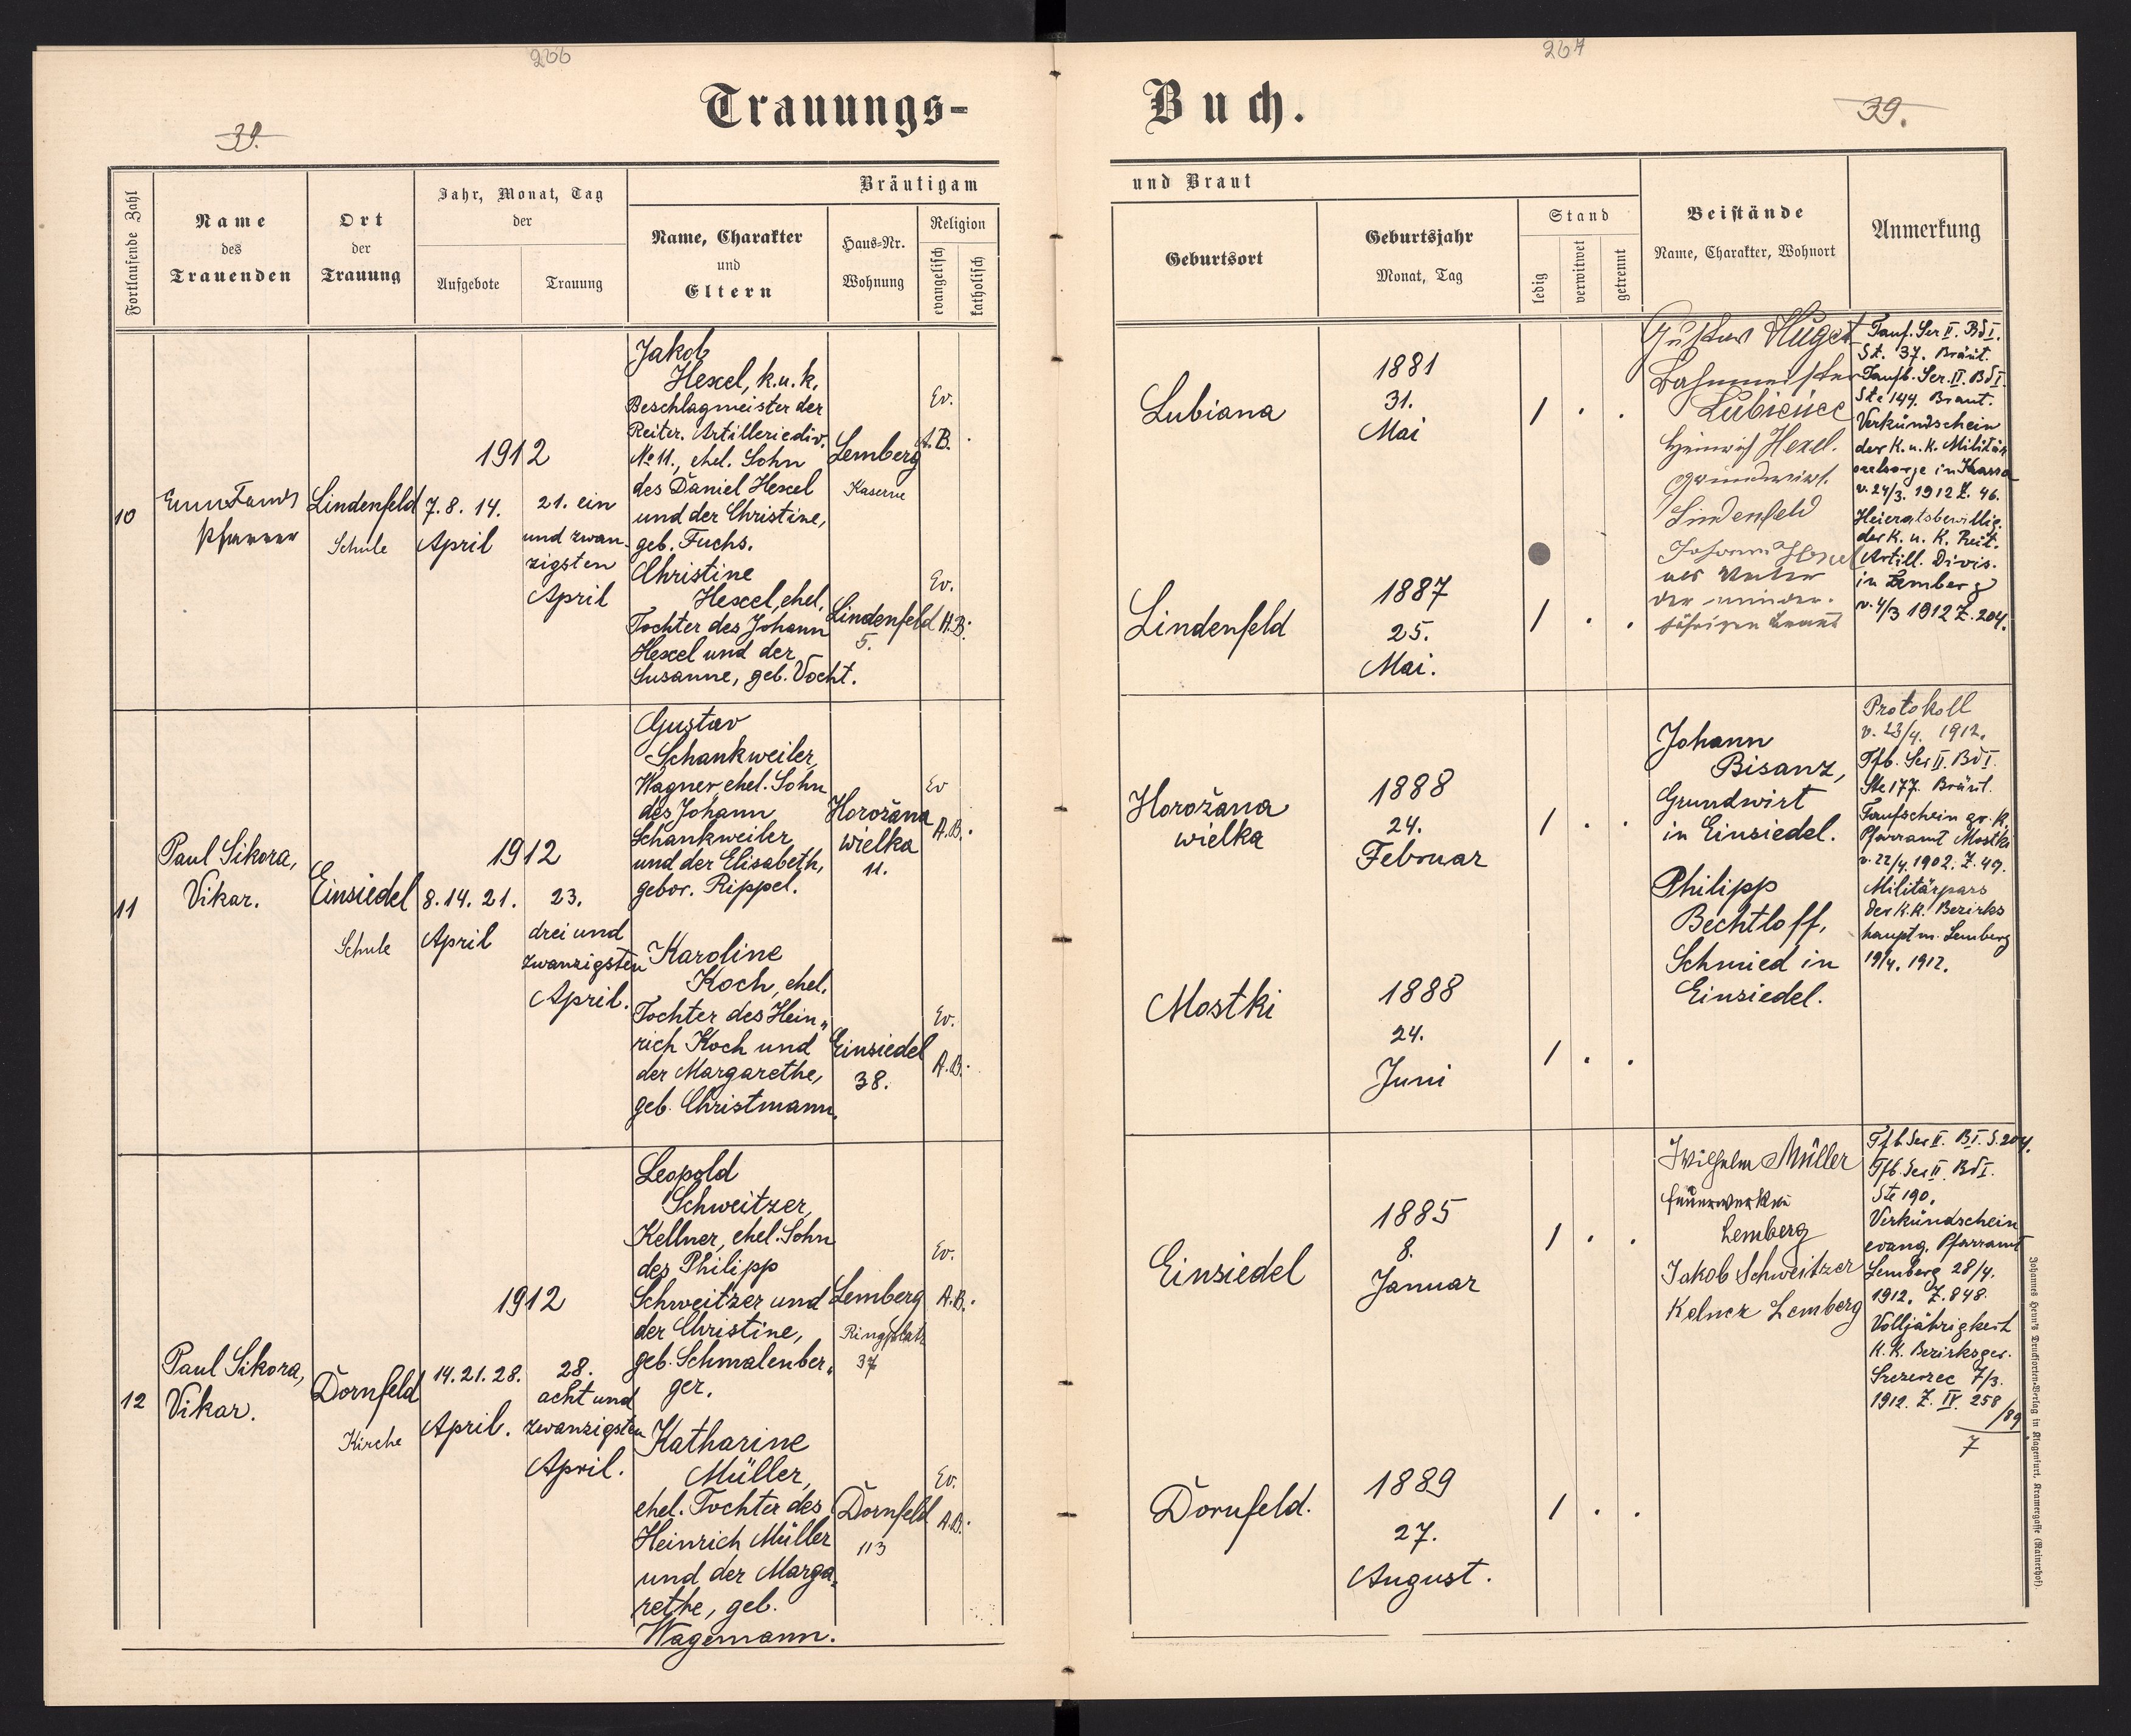 266
267
Trauungs-
Buch.
39.
39.
Fortlaufende Zahl
Name
des
Trauenden
Ort
der
Trauung
Jahr, Monat, Tag
der
Aufgebote
Trauung
Bräutigam
Name, Charakter
und
Eltern
Haus-Nr.
Wohnung
Religion
evangelisch
katholisch
und Braut
Geburtsort
Geburtsjahr
Monat, Tag
Stand
ledig
verwitwet
getrennt
Beistände
Name, Charakter, Wohnort
Anmerkung
10
Pfarrer
Lindenfeld
Schule
1912
7. 8. 14.
April
21. ein
und zwan-
zigsten
April
Jakob
Hexel, k. u. k.
Beschlagmeister der
Reiter. Artilleriediv.
No 11., ehel. Sohn
des Daniel Hexel
und der Christine,
geb. Fuchs.
Lemberg
Kaserne
Ev.
A.B.
Christine
Hexel, ehel.
Tochter des Johann
Hexel und der
Susanne, geb. Vocht.
Lindenfeld
5.
Ev.
H.B.
Lubiana
1881
31.
Mai
Lindenfeld
1887
25.
Mai.
Gustav Huget
Bahnmeister
Heinrich Hexel.
Grundwirt.
Lindenfeld
Johann Hexel
als Vater
der minder-
jährigen Braut
Tauf. Ser II. Bd I.
St. 37. Bräut.
Taufb. Ser. II. Bd I.
Ste 144. Braut.
Verkündschein
der k. u. k. Militär
seelsorge in
v. 24/3. 1912 Z. 46.
Heiratsbewillig.
der k. u. k. Reit.
Artill. Divis.
in Lemberg
v. 4/3 1912 Z. 204.
11
Paul Sikora,
Vikar.
Einsiedel
Schule
1912
8. 14. 21.
April
23.
drei und
zwanzigsten
April.
Gustav
Schankweiler,
Wagner, ehel. Sohn
des Johann
Schankweiler
und der Elisabeth,
gebor. Rippel.
Horožana
wielka
11.
Ev
A.B.
Karoline
Koch, ehel.
Tochter des Hein„
rich Koch und
der Margarethe,
geb. Christmann.
Einsiedel
38.
Ev.
A.B.
Horožana
wielka
1888
24.
Februar
Mostki
1888
24.
Juni
Johann
Bisanz,
Grundwirt
in Einsiedel.
Philipp
Bechtloff,
Schmied in
Einsiedel.
Protokoll
v. 23/4. 1912.
Tfb. Ser II. Bd I.
Ste 177. Bräut.
Taufschein gr. k.
Pfarramt Mostki
v. 22/4. 1902. Z. 49.
Militärpass
der k. k. Bezirks
hauptm. Lemberg
19/4. 1912.
12
Paul Sikora,
Vikar.
Dornfeld
Kirche
1912
14. 21. 28.
April.
28.
acht und
zwanzigsten
April.
Leopold
Schweitzer,
Kellner, ehel. Sohn
des Philipp
Schweitzer und
der Christine,
geb. Schmalenber„
ger.
Lemberg
Ringplatz
37
Ev.
A.B.
Katharine
Müller,
ehel. Tochter des
Heinrich Müller
und der Marga„
rethe, geb.
Wagemann.
Dornfeld
113
Ev.
A.B.
Einsiedel
1885
8.
Januar
Dornfeld.
1889
27.
August.
Wilhelm Müller
Feuerwerker
Lemberg
Jakob Schweitzer
Kelner Lemberg
Tfb. Ser II. B I. S. 204.
Tfb. Ser II. Bd I.
Ste 190.
Verkündschein
evang. Pfarramt
Lemberg 28/4.
1912. Z. 848.
Volljährigkeit
K. K. Bezirksger.
Szczerzec 7/3.
1912. Z. IV. 258
/89
7
Johannes Heyn's Drucksorten-Verlag in Klagenfurt, Kramergasse (Rainerhof).